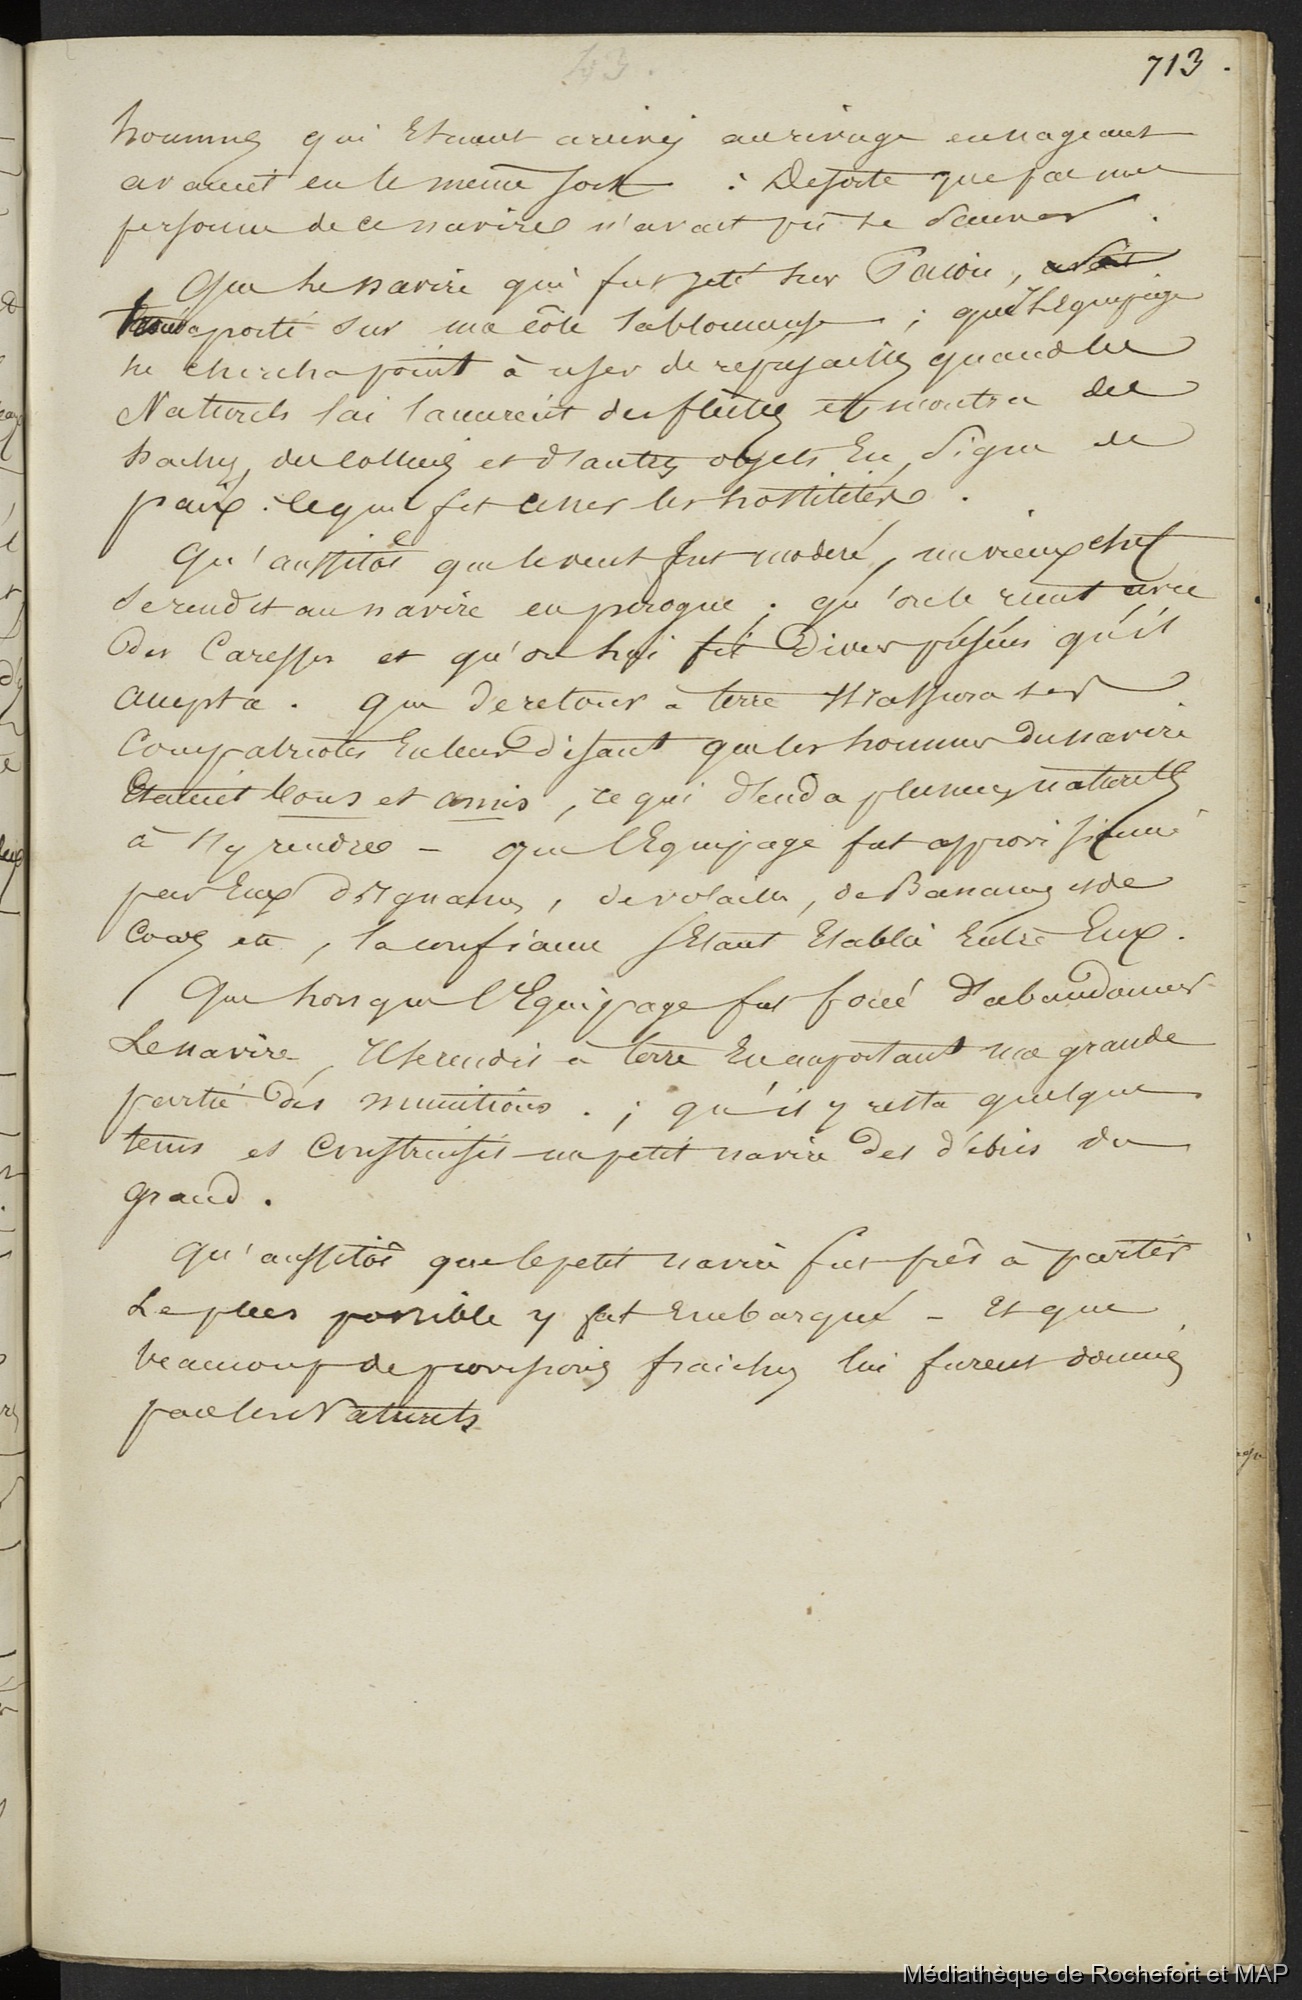 43.
713.
hommes qui Etaient arrivés au rivage en nageant
avaient eu le même sort : Desorte que par une
personne de ce navire n'avait pu se sauver.
Que le navire qui fut jeté sur Pacou, avait
porté sur une côte sablonneuse ; que l'Equipage
ne chercha point à user de represailles quand les
Naturels lui lancèrent des flèches et montra des
haches, des colliers et d'autres objets En Signe de
paix : ce qui fit cesser les hostilités.
Qu'aussitôt que le vent fut moderé, un vieux chef
se rendit au navire en pirogue ; qu'on le reçut avec
des Caresses et qu'on lui fit Divers présens qu'il
accepta. que de retour à terre Il rassura ses
Compatriotes En leur disant que les hommes du navire
Etaient bons et amis, ce qui plusieurs naturels
à s'y rendre – que l'Equipage fut approvisionné
par Eux d'Ignames, de volailles, de Bananes et de
Cocos etc, la confiance s'Etant Etablie Entre Eux.
Que lorsque l'Equipage fut forcé d'abandonner
Le navire, Il se rendit à terre En emportant une grande
partie des munitions. ; qu'il y resta quelque
tems et Construisit un petit navire des débris du
grand.
qu'aussitôt que le petit navire fut prêt à partir
Le plus possible y fut Embarqué – Et que
beaucoup de provisions fraiches lui furent données
par les Naturels
Médiathèque de Rochefort et MAP